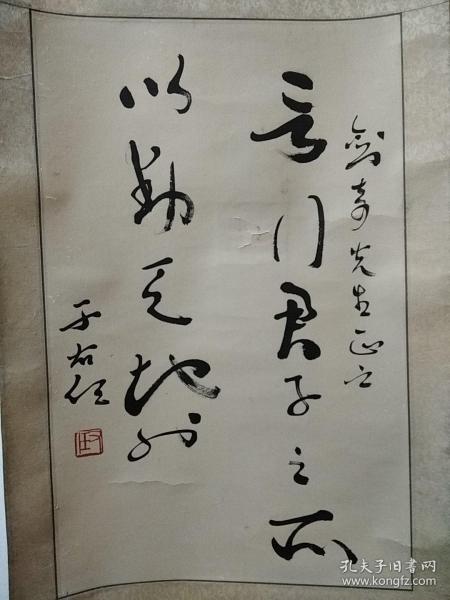 剑奇先生正之
言行君子之所
以动天地也
于右任
孔夫子旧书网
www.kongfz.com